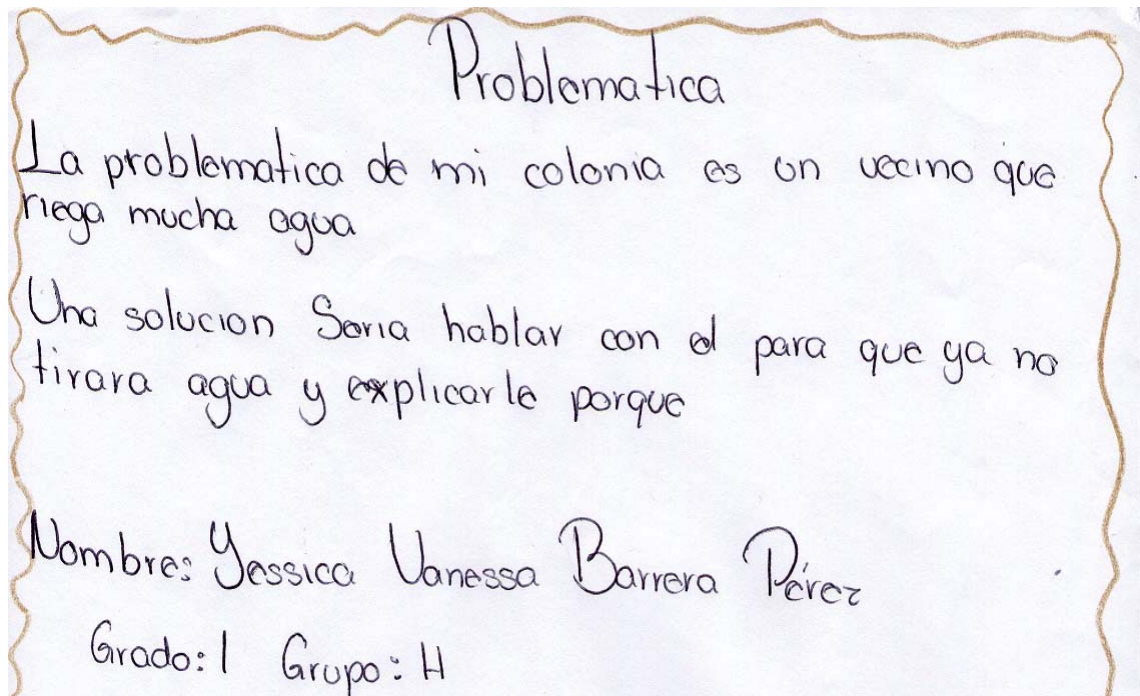 Problematica
La problematica de mi colonia es un vecino que
riega mucha agua
Una solucion Seria hablar con el para que ya no
tirara agua y explicarle porque
Nombre: Yessica Vanessa Barrera Pérez
Grado: 1 Grupo: H